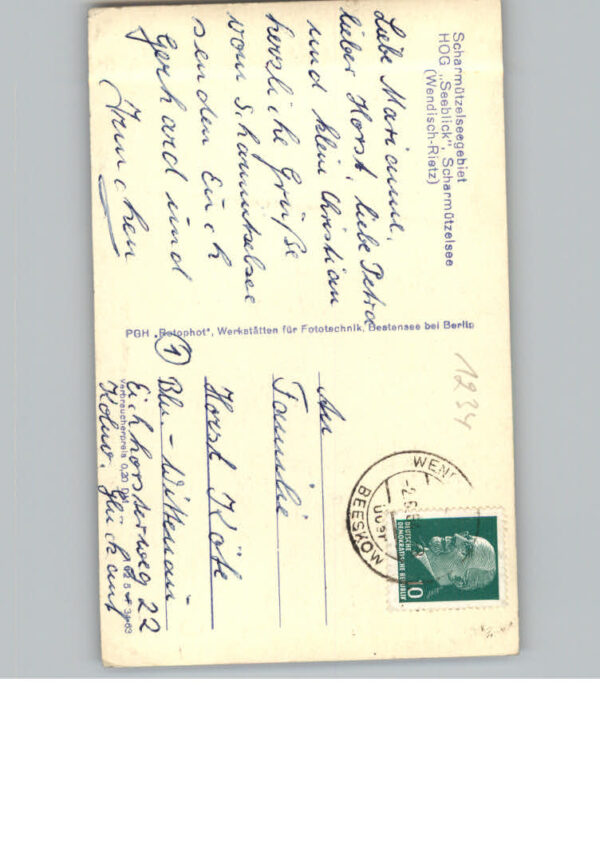 Scharmützelseegebiet
HOG „Seeblick", Scharmützelsee
(Wendisch-Rietz)
Liebe Marianne,
lieber Horst, liebe Petra
und klein Christian
herzliche Grüße
vom Scharmützelsee
senden Euch
Gerhard und
Ännchen
PGH „Rotophot", Werkstätten für Fototechnik, Bestensee bei Berlin
1234
An
Familie
Horst Köte
① Bln-Wittenau
Eichhorsterweg 22
Kolonie Glück auf
Verbraucherpreis 0,20 DM
WEN
über
BEESKOW
DEUTSCHE
DEMOKRATISCHE REPUBLIK
10